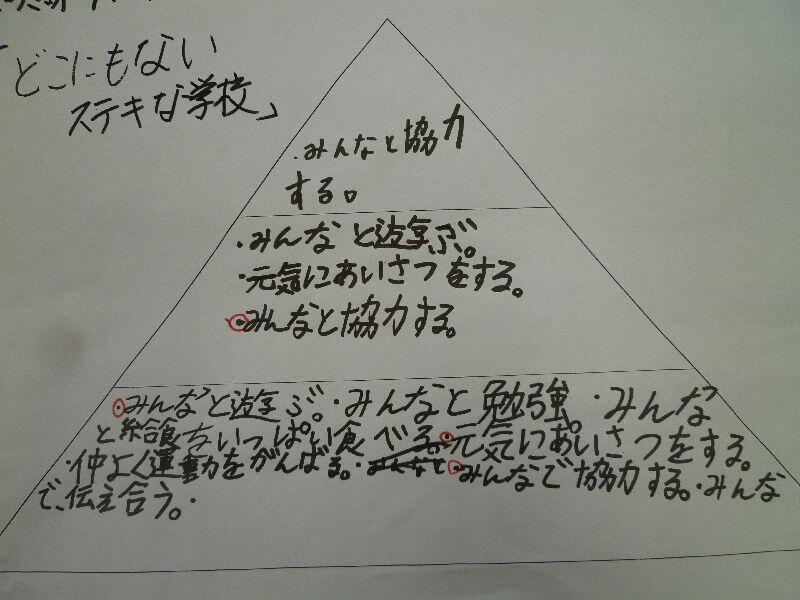 「どこにもない
ステキな学校」
・みんなと協力
する。
・みんなと遊ぶ。
・元気にあいさつをする。
・みんなと協力する。
・みんなと遊ぶ。・みんなと勉強。・みんな
と給食をいっぱい食べる。・元気にあいさつをする。
・仲よく運動をがんばる。・みんなと・みんなで協力する。・みんな
で、伝え合う。・